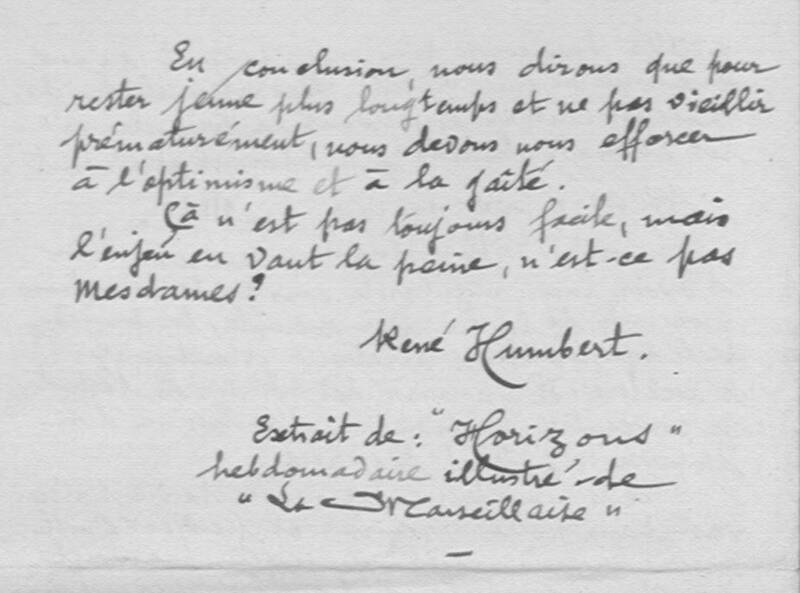 En conclusion, nous dirons que pour
rester jeune plus longtemps et ne pas vieillir
prématurément, nous devons nous efforcer
à l'optimisme et à la gaîté.
Çà n'est pas toujours facile, mais
l'enjeu en vaut la peine, n'est-ce pas
Mesdames ?
René Humbert.
Extrait de : "Horizons"
hebdomadaire illustré de
"La Marseillaise"
—